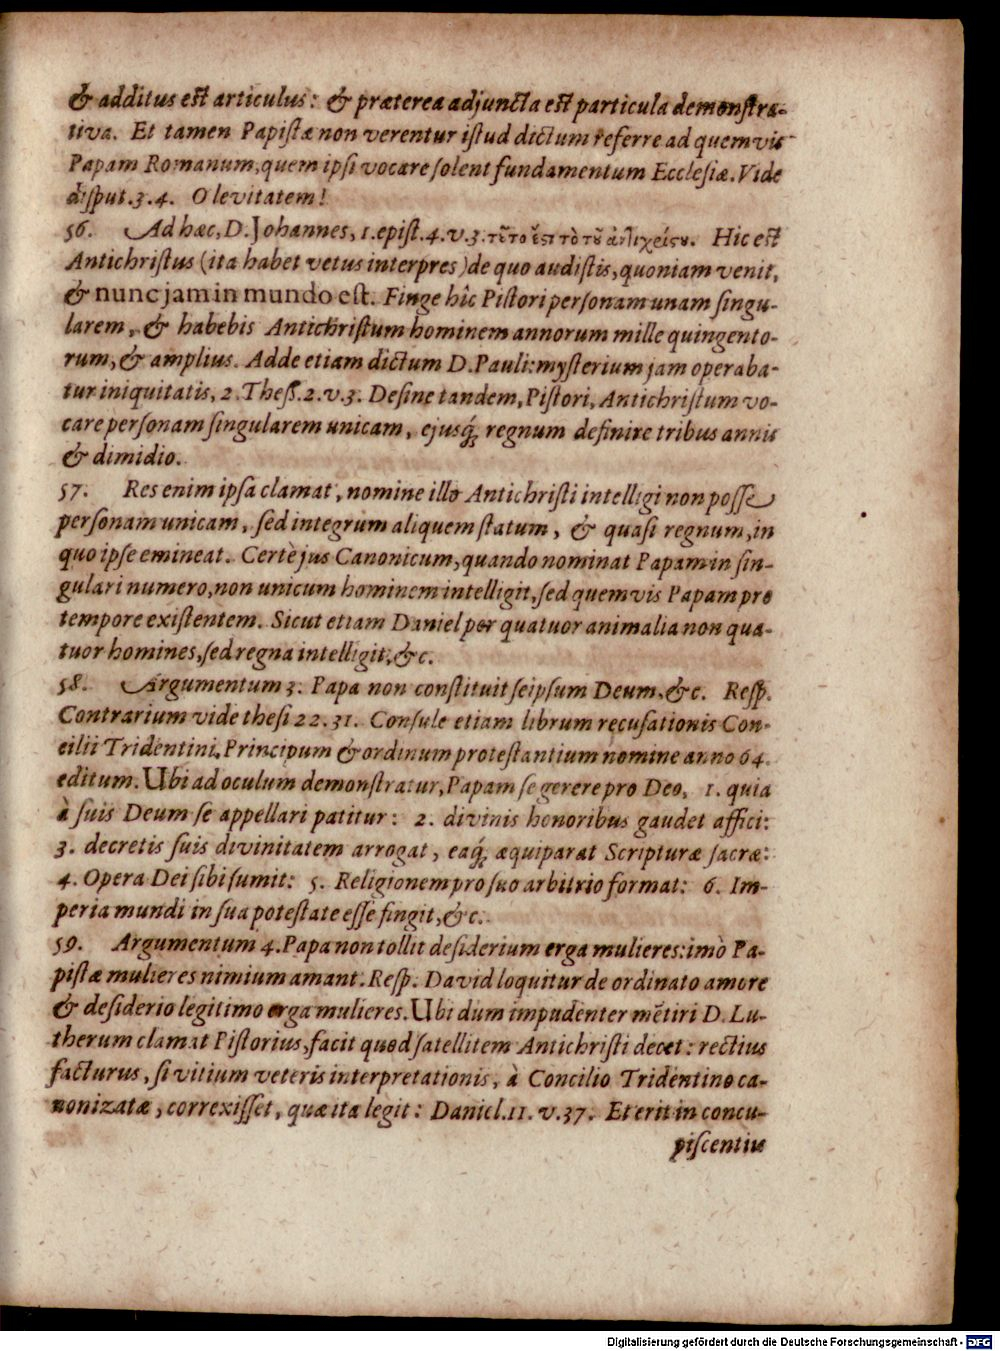 & additus est articulus: & præterea adjuncta est particula demonstra-
tiva. Et tamen Papistæ non verentur istud dictum referre ad quemvis
Papam Romanum, quem ipsi vocare solent fundamentum Ecclesiæ. Vide
disput. 3. 4. O levitatem!
56. Ad hæc, D. Johannes, 1. epist. 4. v. 3. τοῦτο ἔστι τὸ τοῦ ἀντιχρίστου. Hic est
Antichristus (ita habet vetus interpres) de quo audistis, quoniam venit,
& nunc jam in mundo est. Finge hîc Pistori personam unam singu-
larem, & habebis Antichristum hominem annorum mille quingento-
rum, & amplius. Adde etiam dictum D. Pauli: mysterium jam operaba-
tur iniquitatis, 2. Thess. 2. v. 3. Desine tandem, Pistori, Antichristum vo-
care personam singularem unicam, ejusq́; regnum definire tribus annis
& dimidio.
57. Res enim ipsa clamat, nomine illo Antichristi intelligi non posse
personam unicam, sed integrum aliquem statum, & quasi regnum, in
quo ipse emineat. Certè jus Canonicum, quando nominat Papam in sin-
gulari numero, non unicum hominem intelligit, sed quemvis Papam pro
tempore existentem. Sicut etiam Daniel per quatuor animalia non qua-
tuor homines, sed regna intelligit, &c.
58. Argumentum 3. Papa non constituit seipsum Deum, &c. Resp.
Contrarium vide thesi 22. 31. Consule etiam librum recusationis Con-
cilii Tridentini, Principum & ordinum protestantium nomine anno 64.
editum. Ubi ad oculum demonstratur, Papam se gerere pro Deo, 1. quia
à suis Deum se appellari patitur: 2. divinis honoribus gaudet affici:
3. decretis suis divinitatem arrogat, eaq́; æquiparat Scripturæ sacræ:
4. Opera Dei sibi sumit: 5. Religionem pro suo arbitrio format: 6. Im-
peria mundi in sua potestate esse fingit, &c.
59. Argumentum 4. Papa non tollit desiderium erga mulieres: imò Pa-
pistæ mulieres nimium amant. Resp. David loquitur de ordinato amore
& desiderio legitimo erga mulieres. Ubi dum impudenter mẽtiri D. Lu-
therum clamat Pistorius, facit quod satellitem Antichristi decet: rectius
facturus, si vitium veteris interpretationis, à Concilio Tridentino ca-
nonizatæ, correxisset, quæ ita legit: Daniel. 11. v. 37. Et erit in concu-
piscentiis
Digitalisierung gefördert durch die Deutsche Forschungsgemeinschaft - DFG